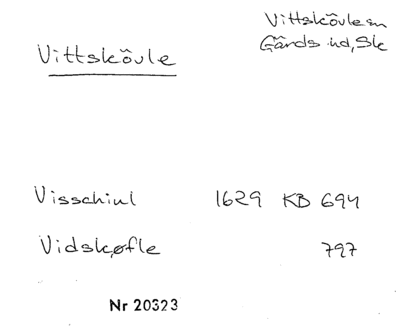 Vittskövle
Vittskövle sn
Gärds hd, Sk
Visschiul 1629 KB 694
Vidskøfle 797
Nr 20323